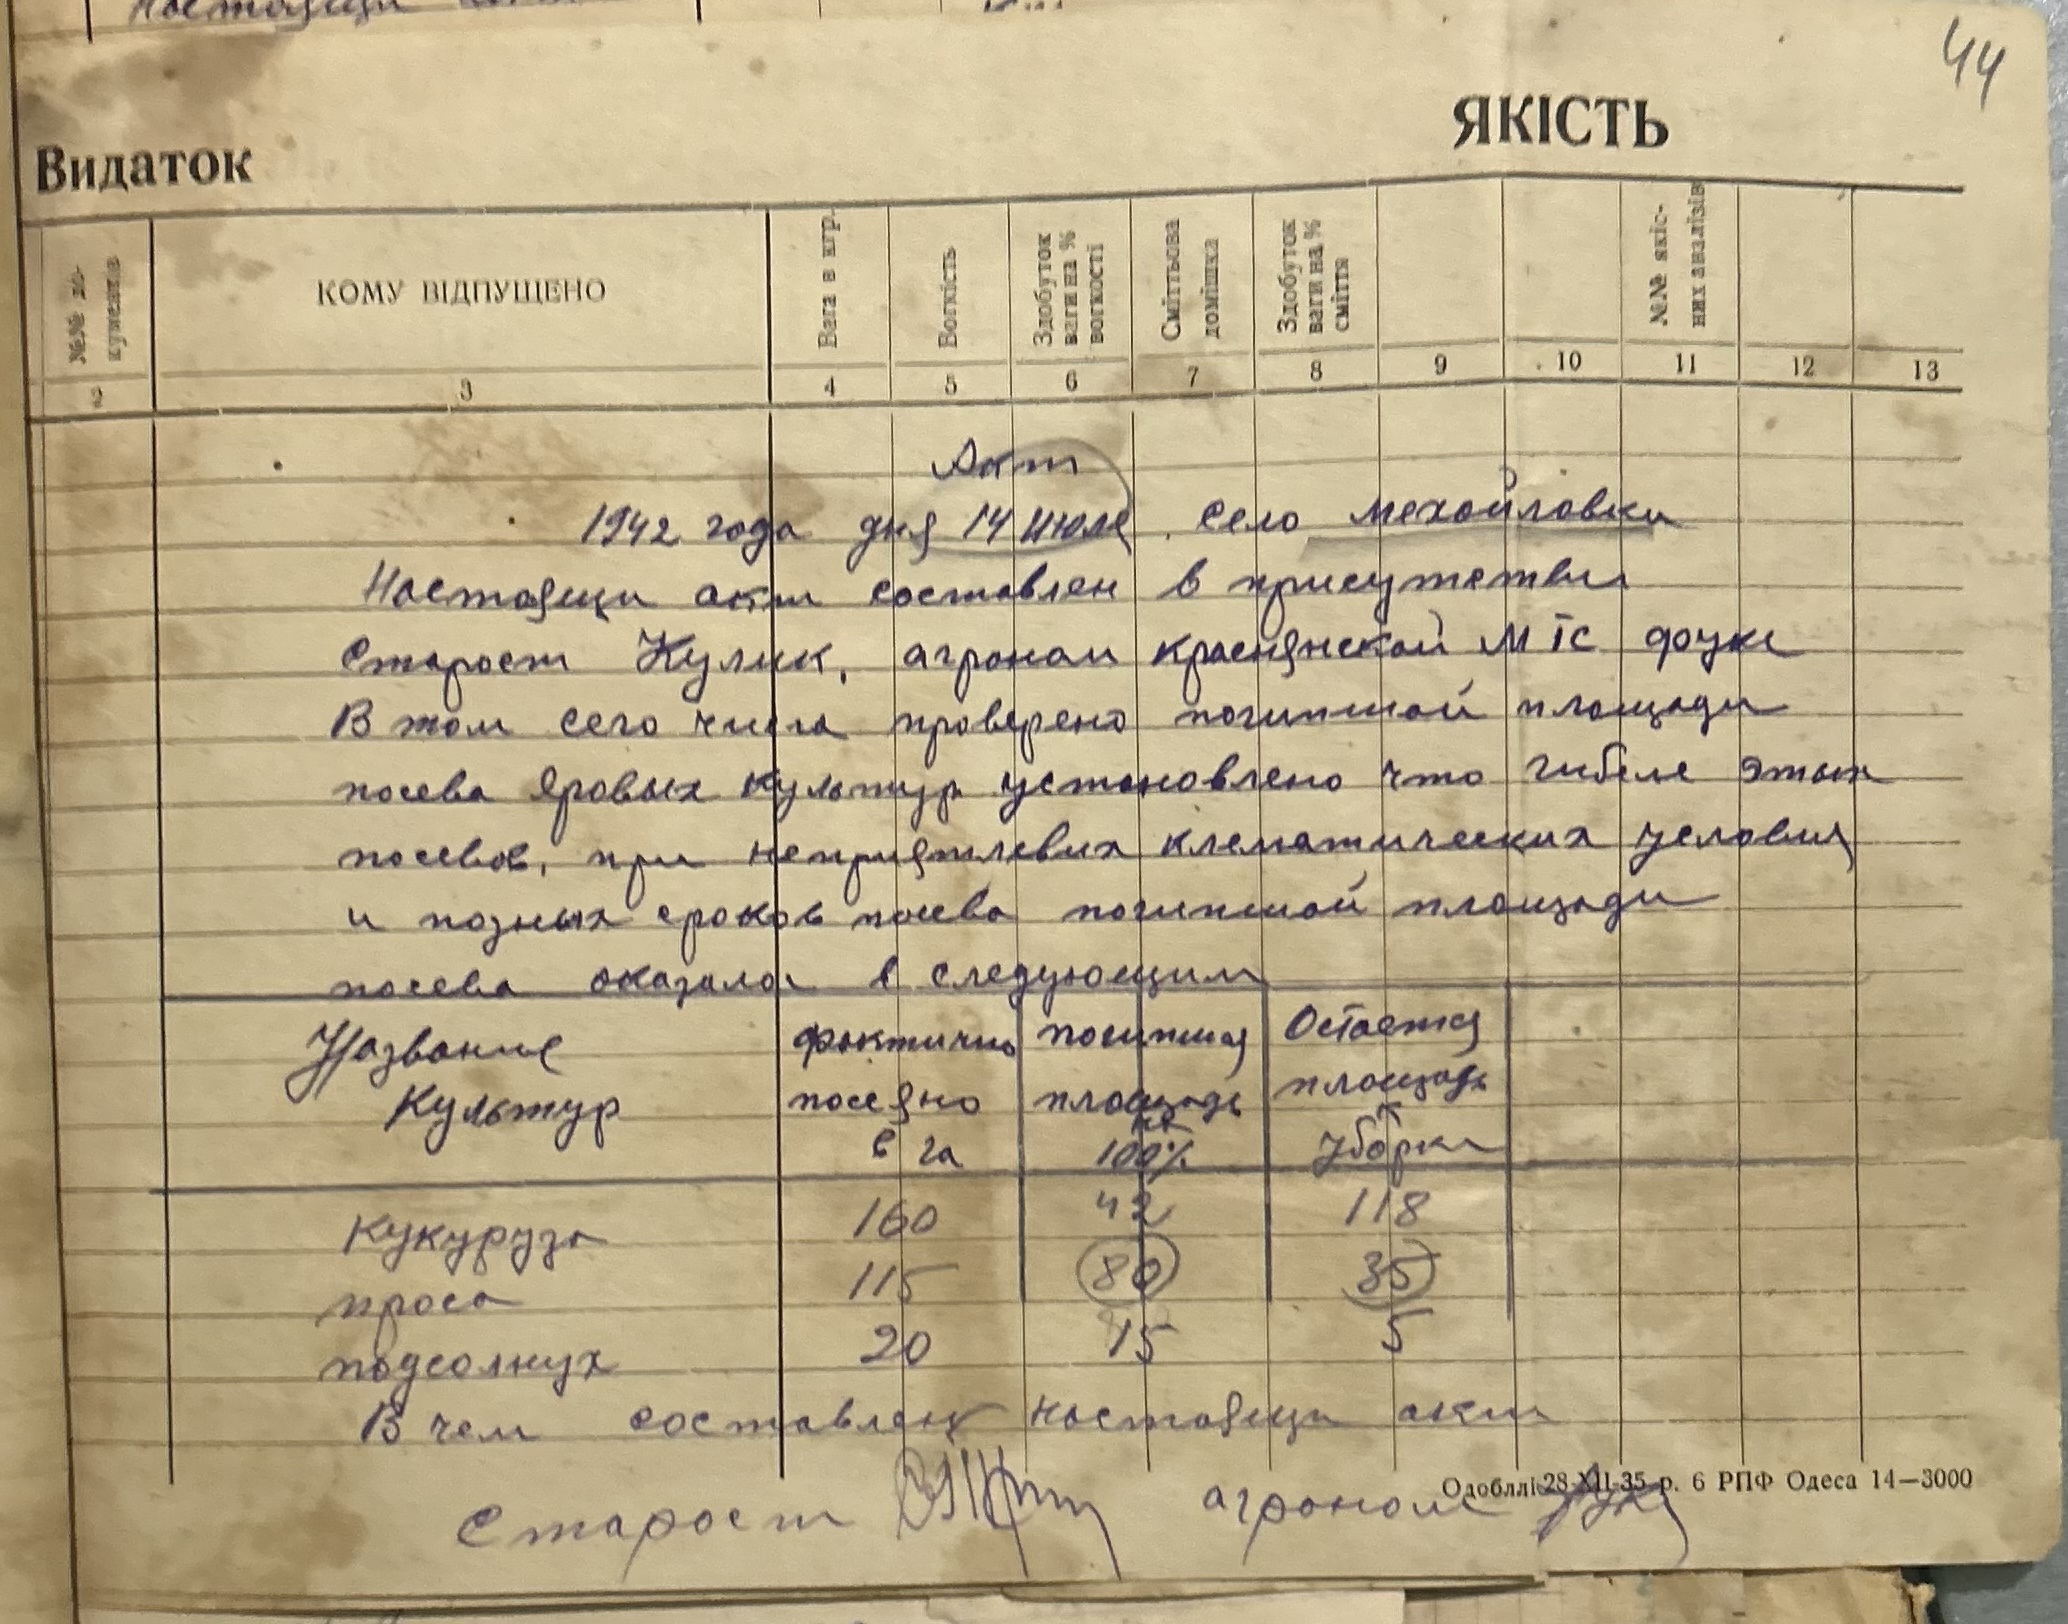 44
Видаток
ЯКІСТЬ
№№ до-
кументів
КОМУ ВІДПУЩЕНО
Вага в кгр.
Вогкість
Здобуток
ваги на %
вогкості
Смітньова
домішка
Здобуток
ваги на %
сміття
№№ якіс-
них аналізів
2 3 4 5 6 7 8 9 10 11 12 13
Акт
1942 года дня 14 июля. село мехайловки
Настоящи акт составлен в присутстви
Старост Кулик, агроном краснянской МТС фуке
В том сего числа проверено погипшой площади
посева яровых культур установлено что гибеле этых
посевов, при неприятлевих клематических условия
и позных сроков посева погипшой площади
посева оказалос в следующим
Название
Культур
фактично
посеяно
в га
погипшая
площадь
на
100%
Остаетса
площадь
к
уборки
кукуруза 160 42 118
проса 115 80 35
подсолнух 20 15 5
В чем составлен настоящи акт
Старост агроном
Одобллі 28-XII-35 р. 6 РПФ Одеса 14—3000